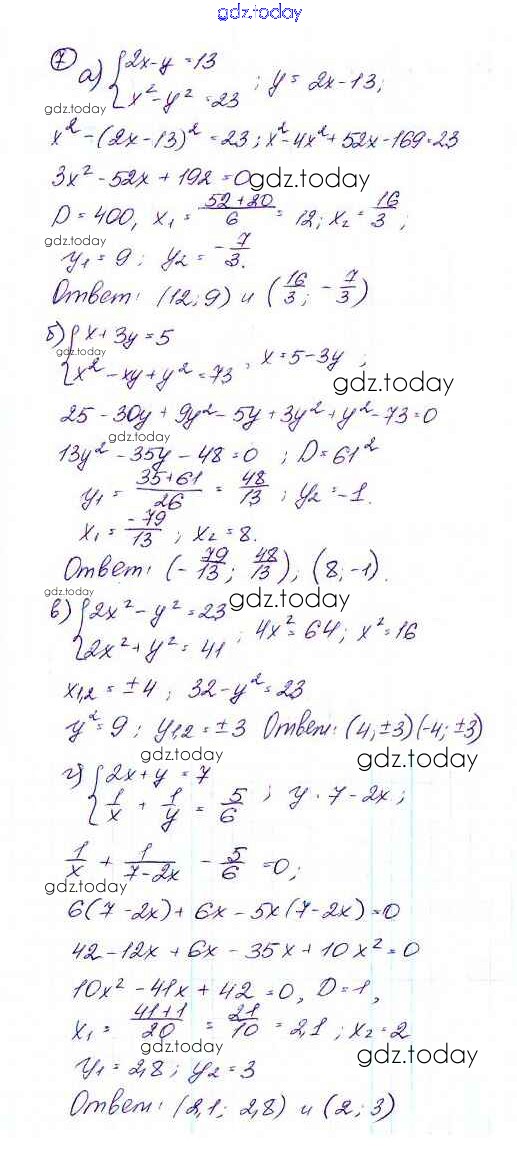 gdz.today
⑦ а) { 2x-y = 13
x² - y² = 23 ; y = 2x-13;
gdz.today
x² - (2x-13)² = 23 ; x² - 4x² + 52x - 169 = 23
3x² - 52x + 192 = 0 gdz.today
gdz.today
D = 400, x₁ = (52+20)/6 = 12; x₂ = 16/3 ;
gdz.today
y₁ = 9 ; y₂ = -7/3.
Ответ: (12; 9) и (16/3; -7/3)
б) { x + 3y = 5
x² - xy + y² = 73 , x = 5-3y ;
gdz.today
gdz.today
25 - 30y + 9y² - 5y + 3y² + y² - 73 = 0
gdz.today
13y² - 35y - 48 = 0 ; D = 61²
y₁ = (35+61)/26 = 48/13 ; y₂ = -1.
gdz.today
x₁ = -79/13 ; x₂ = 8.
Ответ: (-79/13; 48/13); (8; -1).
gdz.today
gdz.today
в) { 2x² - y² = 23
2x² + y² = 41 ; 4x² = 64; x² = 16
x₁,₂ = ±4 ; 32 - y² = 23
y² = 9 ; y₁,₂ = ±3 Ответ: (4; ±3) (-4; ±3)
gdz.today
gdz.today
г) { 2x + y = 7
1/x + 1/y = 5/6 ; y · 7 - 2x ;
1/x + 1/(7-2x) - 5/6 = 0;
gdz.today
6(7-2x) + 6x - 5x(7-2x) = 0
42 - 12x + 6x - 35x + 10x² = 0
10x² - 41x + 42 = 0, D = 1,
x₁ = (41+1)/20 = 21/10 = 2,1 ; x₂ = 2
gdz.today
gdz.today
y₁ = 2,8 ; y₂ = 3
Ответ: (2,1; 2,8) и (2; 3)